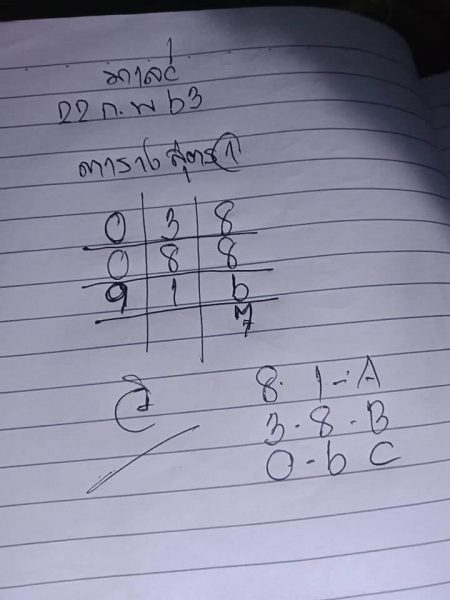 มาเลย์
22 ก.พ 63
ตาราง สูตร 1
0 3 8
0 8 8
9 1 6
7
8. 1-A
3.8.B
0-6 C